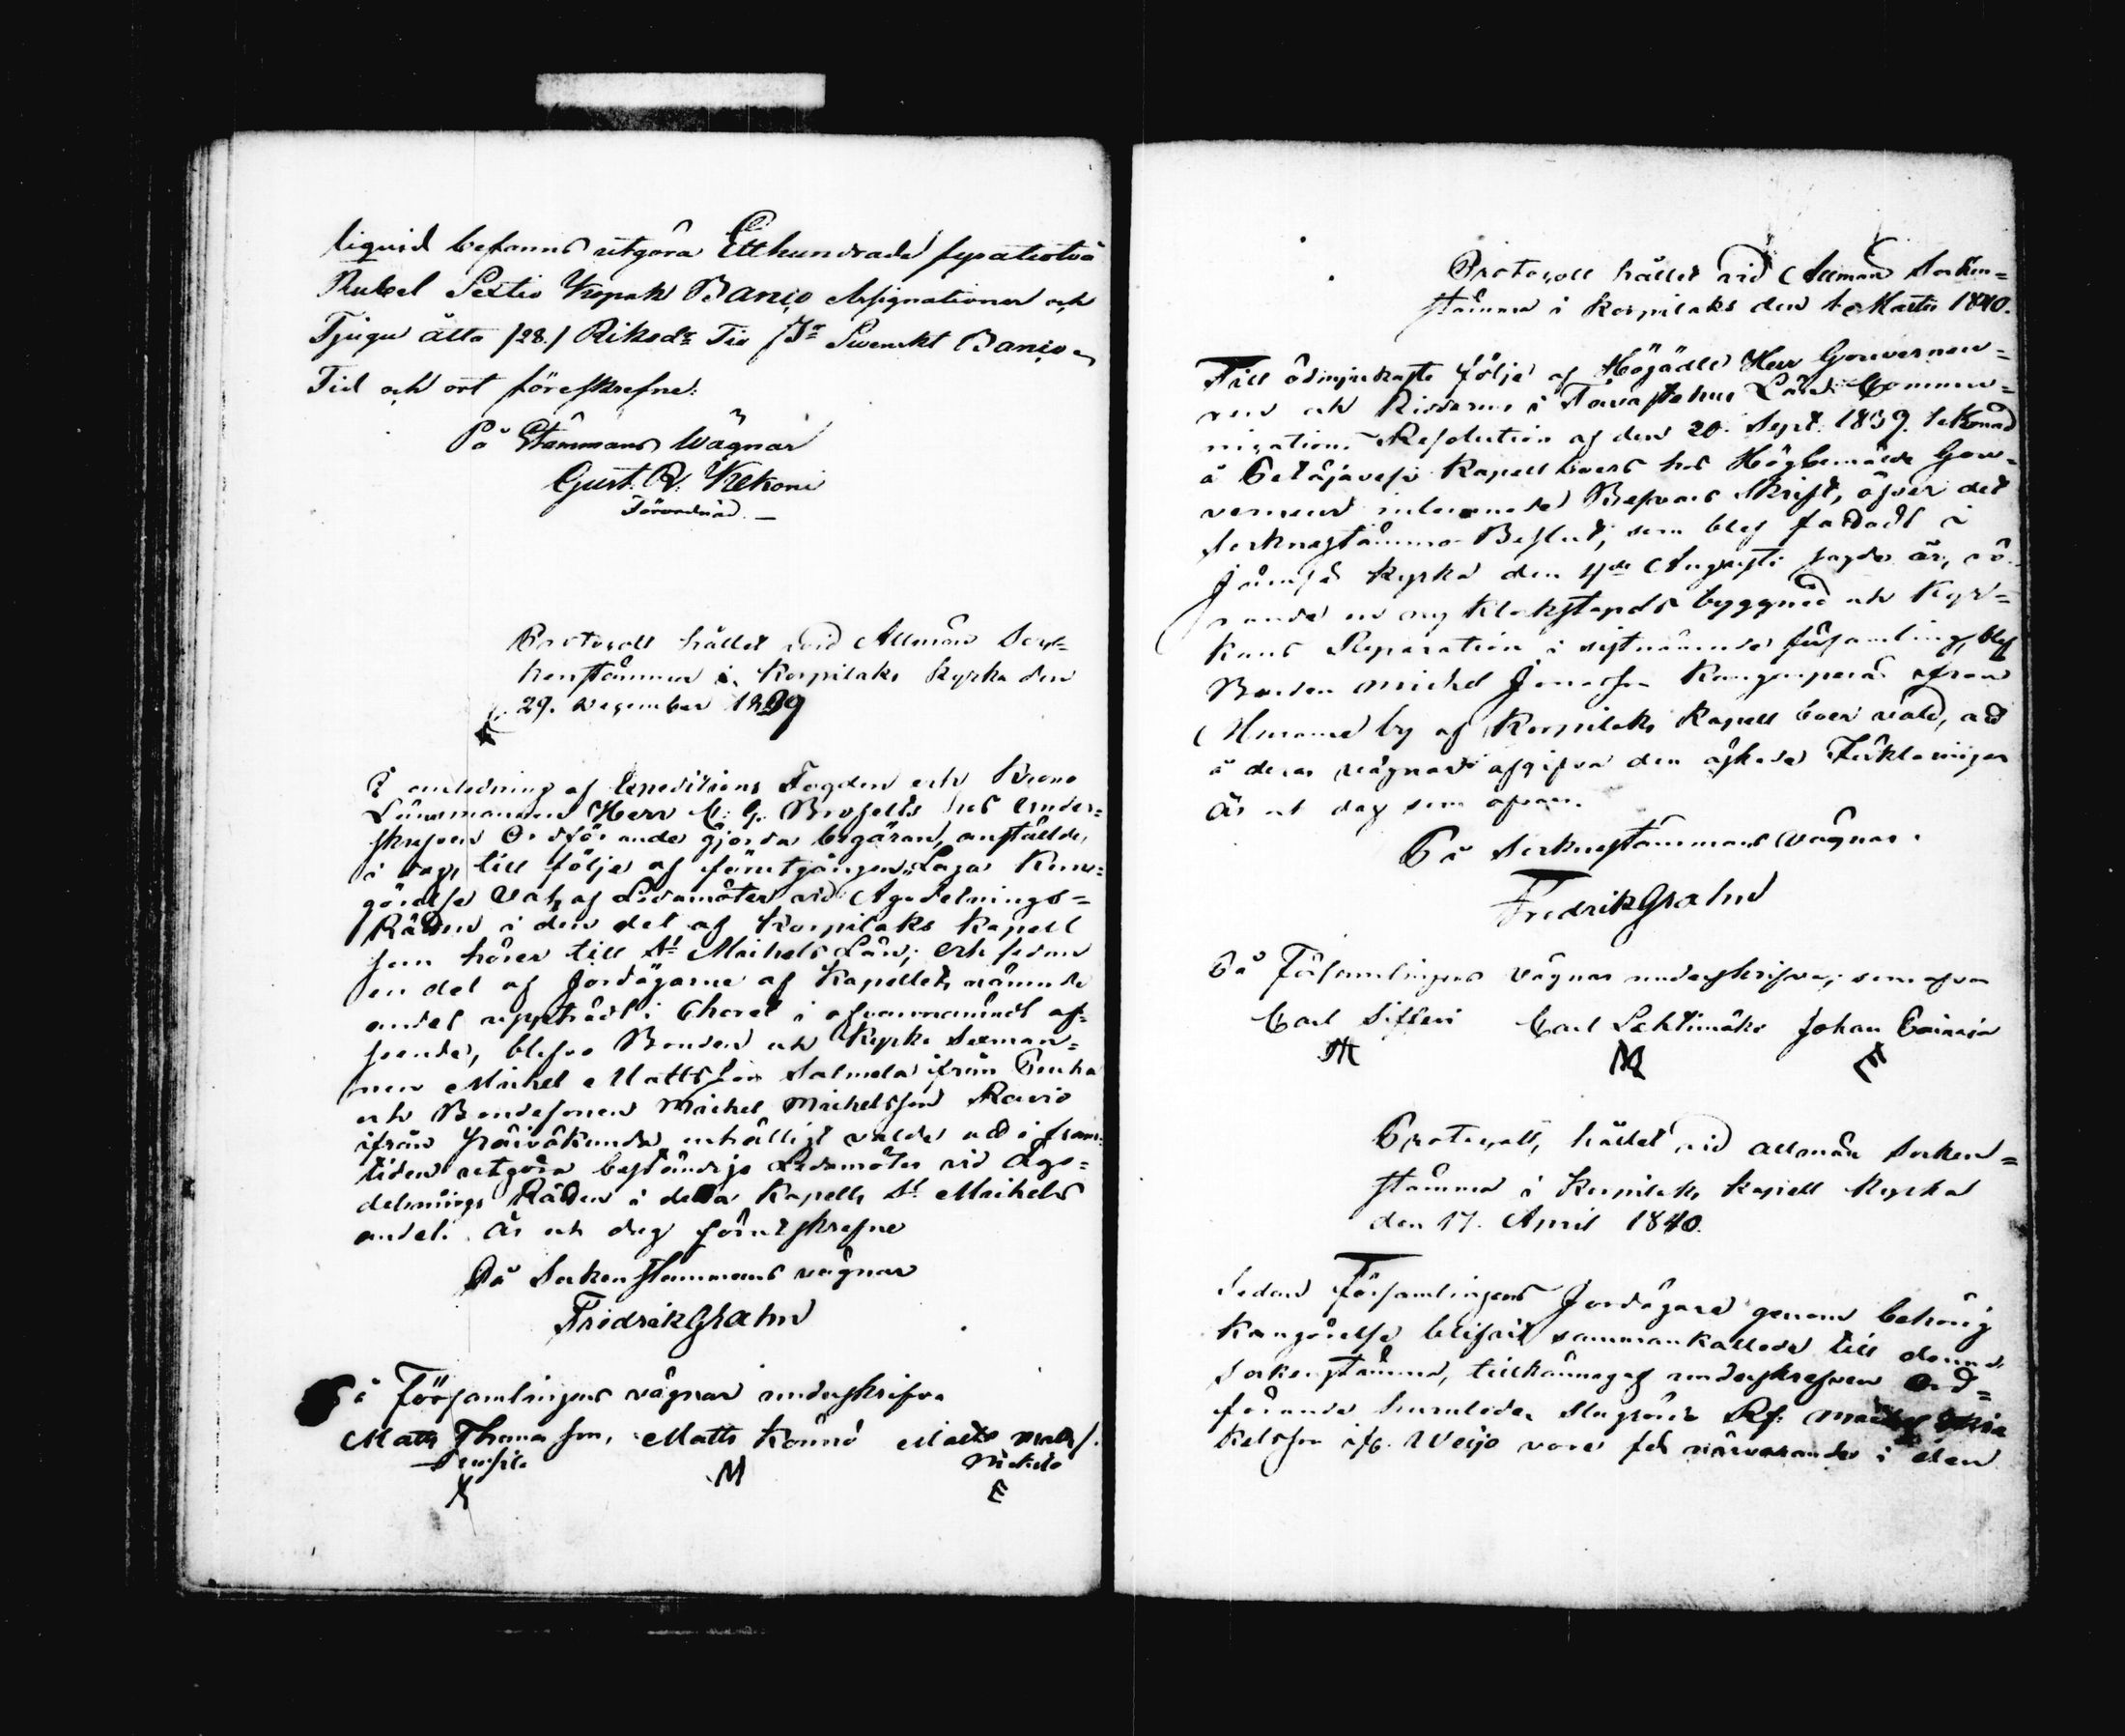 liquid befanns utgöra Etthundrade fyratiotvå
Rubel Sextio Kopek Banco Assignationer och
Tjugu åtta /28./ Riksdr Tio sr Swenskt Banco.
Tid och ort föreskrefne:
På Stämmans Wägnar
Gust. Kekoni
Förordnad.
Protocoll hållet vid Allmän Soc=
kenstämma i Korpilaks Kyrka den
29. December 1839
I anledning af Expeditions Fogden och Krono
Länsmannen Herr C. G. Brofelts hos under=
skrefven Ordförande gjorda begäran, anstäldes
i dag, till följe af förutgången Laga Kun=
görelse Val af Ledamöter vid Ägodelnings=
Rätten i den del af Korpilaks Kapell
som hörer till St Michels Län; och sedan
en del af Jordägarne af Kapellets nämnde
andel uppträdt i Choret i ofvannämndt af=
seende, blefvo Bonden och Kyrko Sexman=
nen Michel Mattsson Salmela ifrån Putka
och Bondesonen Michel Michelsson Ravio
ifrån Päiväkunda enhälligt valde att i fram=
tiden utgöra beständige Ledamöter vid Ägo=
delnings Rätten i detta Kapells St Michels
andel. År och dag förutskrefne
På Sockenstämmans vägnar
Fredrik Grahn
På Församlingens vägnar underskrifva
Matts Thomasson, Matts Mattss.
M
E
Protocoll hållet vid Allmän Socken=
stämma i Korpilaks den 1 Martii 1840.
Till ödmjukaste följe af Högädle Herr Gouverneu=
ren och Riddarens i Tavastehus Län Commu=
nications Resolution af den 20. Sept. 1839. tecknad
å Petäjävesi Kapellboers hos Högbemälde Gou=
verneur inlemnade Besvärs Skrift, öfver det
Socknestämmo Beslut, som blef fattadt i
Jämsä Kyrka den Augusti sagde år, rö=
rande en ny Klockstapels byggnad och Kyr=
kans Reparation i sistnämnde församling, blef
Bonden Michel Jonasson Kangasperä ifrån
by af Korpilaks Kapell boer vald, att
å deras vägnar afgifva den äskade Förklaringen
År och dag som ofvan.
På Socknestämmans vägnar.
Fredrik Grahn
På Församlingens vägnar underskrifva; som ofvan
Carl Sifferi Carl Lehtimäki Johan
Protocoll, hållet vid allmän Socken=
stämma i Korpilaks Kapell Kyrka
den 17. April 1840.
Sedan Församlingens Jordägare genom behörig
Kungörelse blifvit sammankallade till denna
Sockenstämma, tillkännagaf underskrefven Ord=
förande huruledes
Kelsson Weijo vore ej närvarande i den